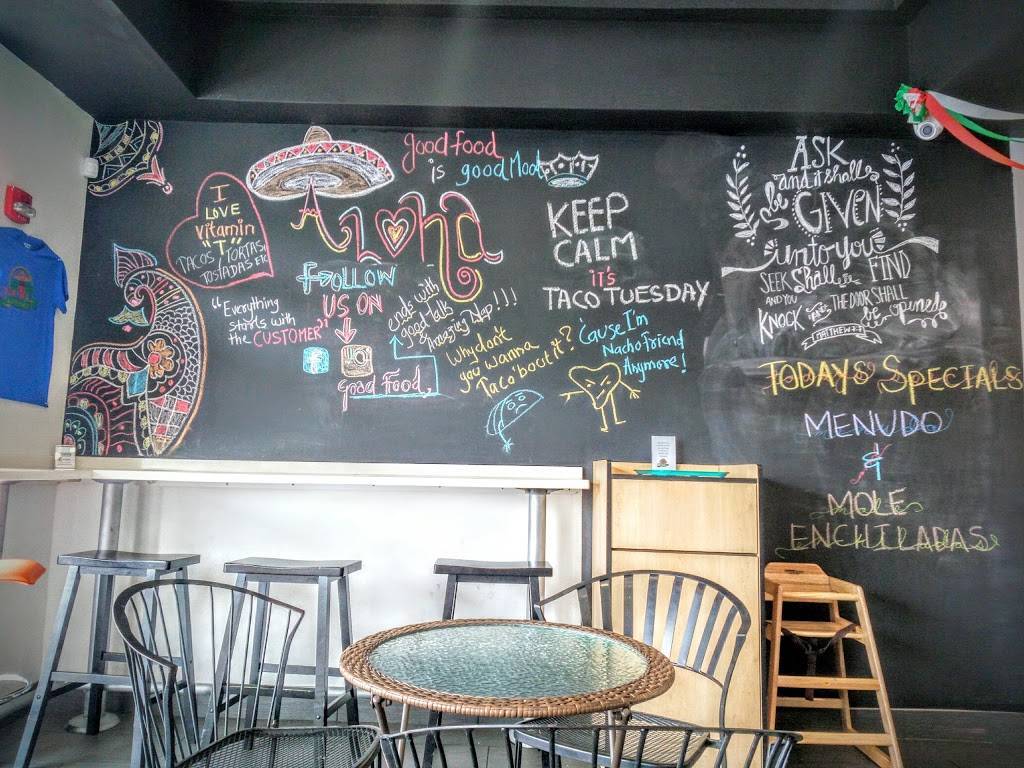 Good food
is good Mood
I
LOVE
Vitamin
"T"
TACOS TORTAS
TOSTADAS ETC
Aloha
FOLLOW
US ON
"Everything
starts with
the CUSTOMER"
Good Food,
ends with
good talk
Amazing Nap!!!
KEEP
CALM
it's
TACO TUESDAY
Why don't
you wanna
Taco 'bout it?
'Cause I'm
Nacho friend
Anymore!
ASK
and it shall
be
GIVEN
unto you
SEEK Shall FIND
AND YOU
KNOCK AND THE DOOR SHALL
be opened
MATTHEW 7:7
TODAY'S SPECIALS
MENUDO
&
MOLE
ENCHILADAS